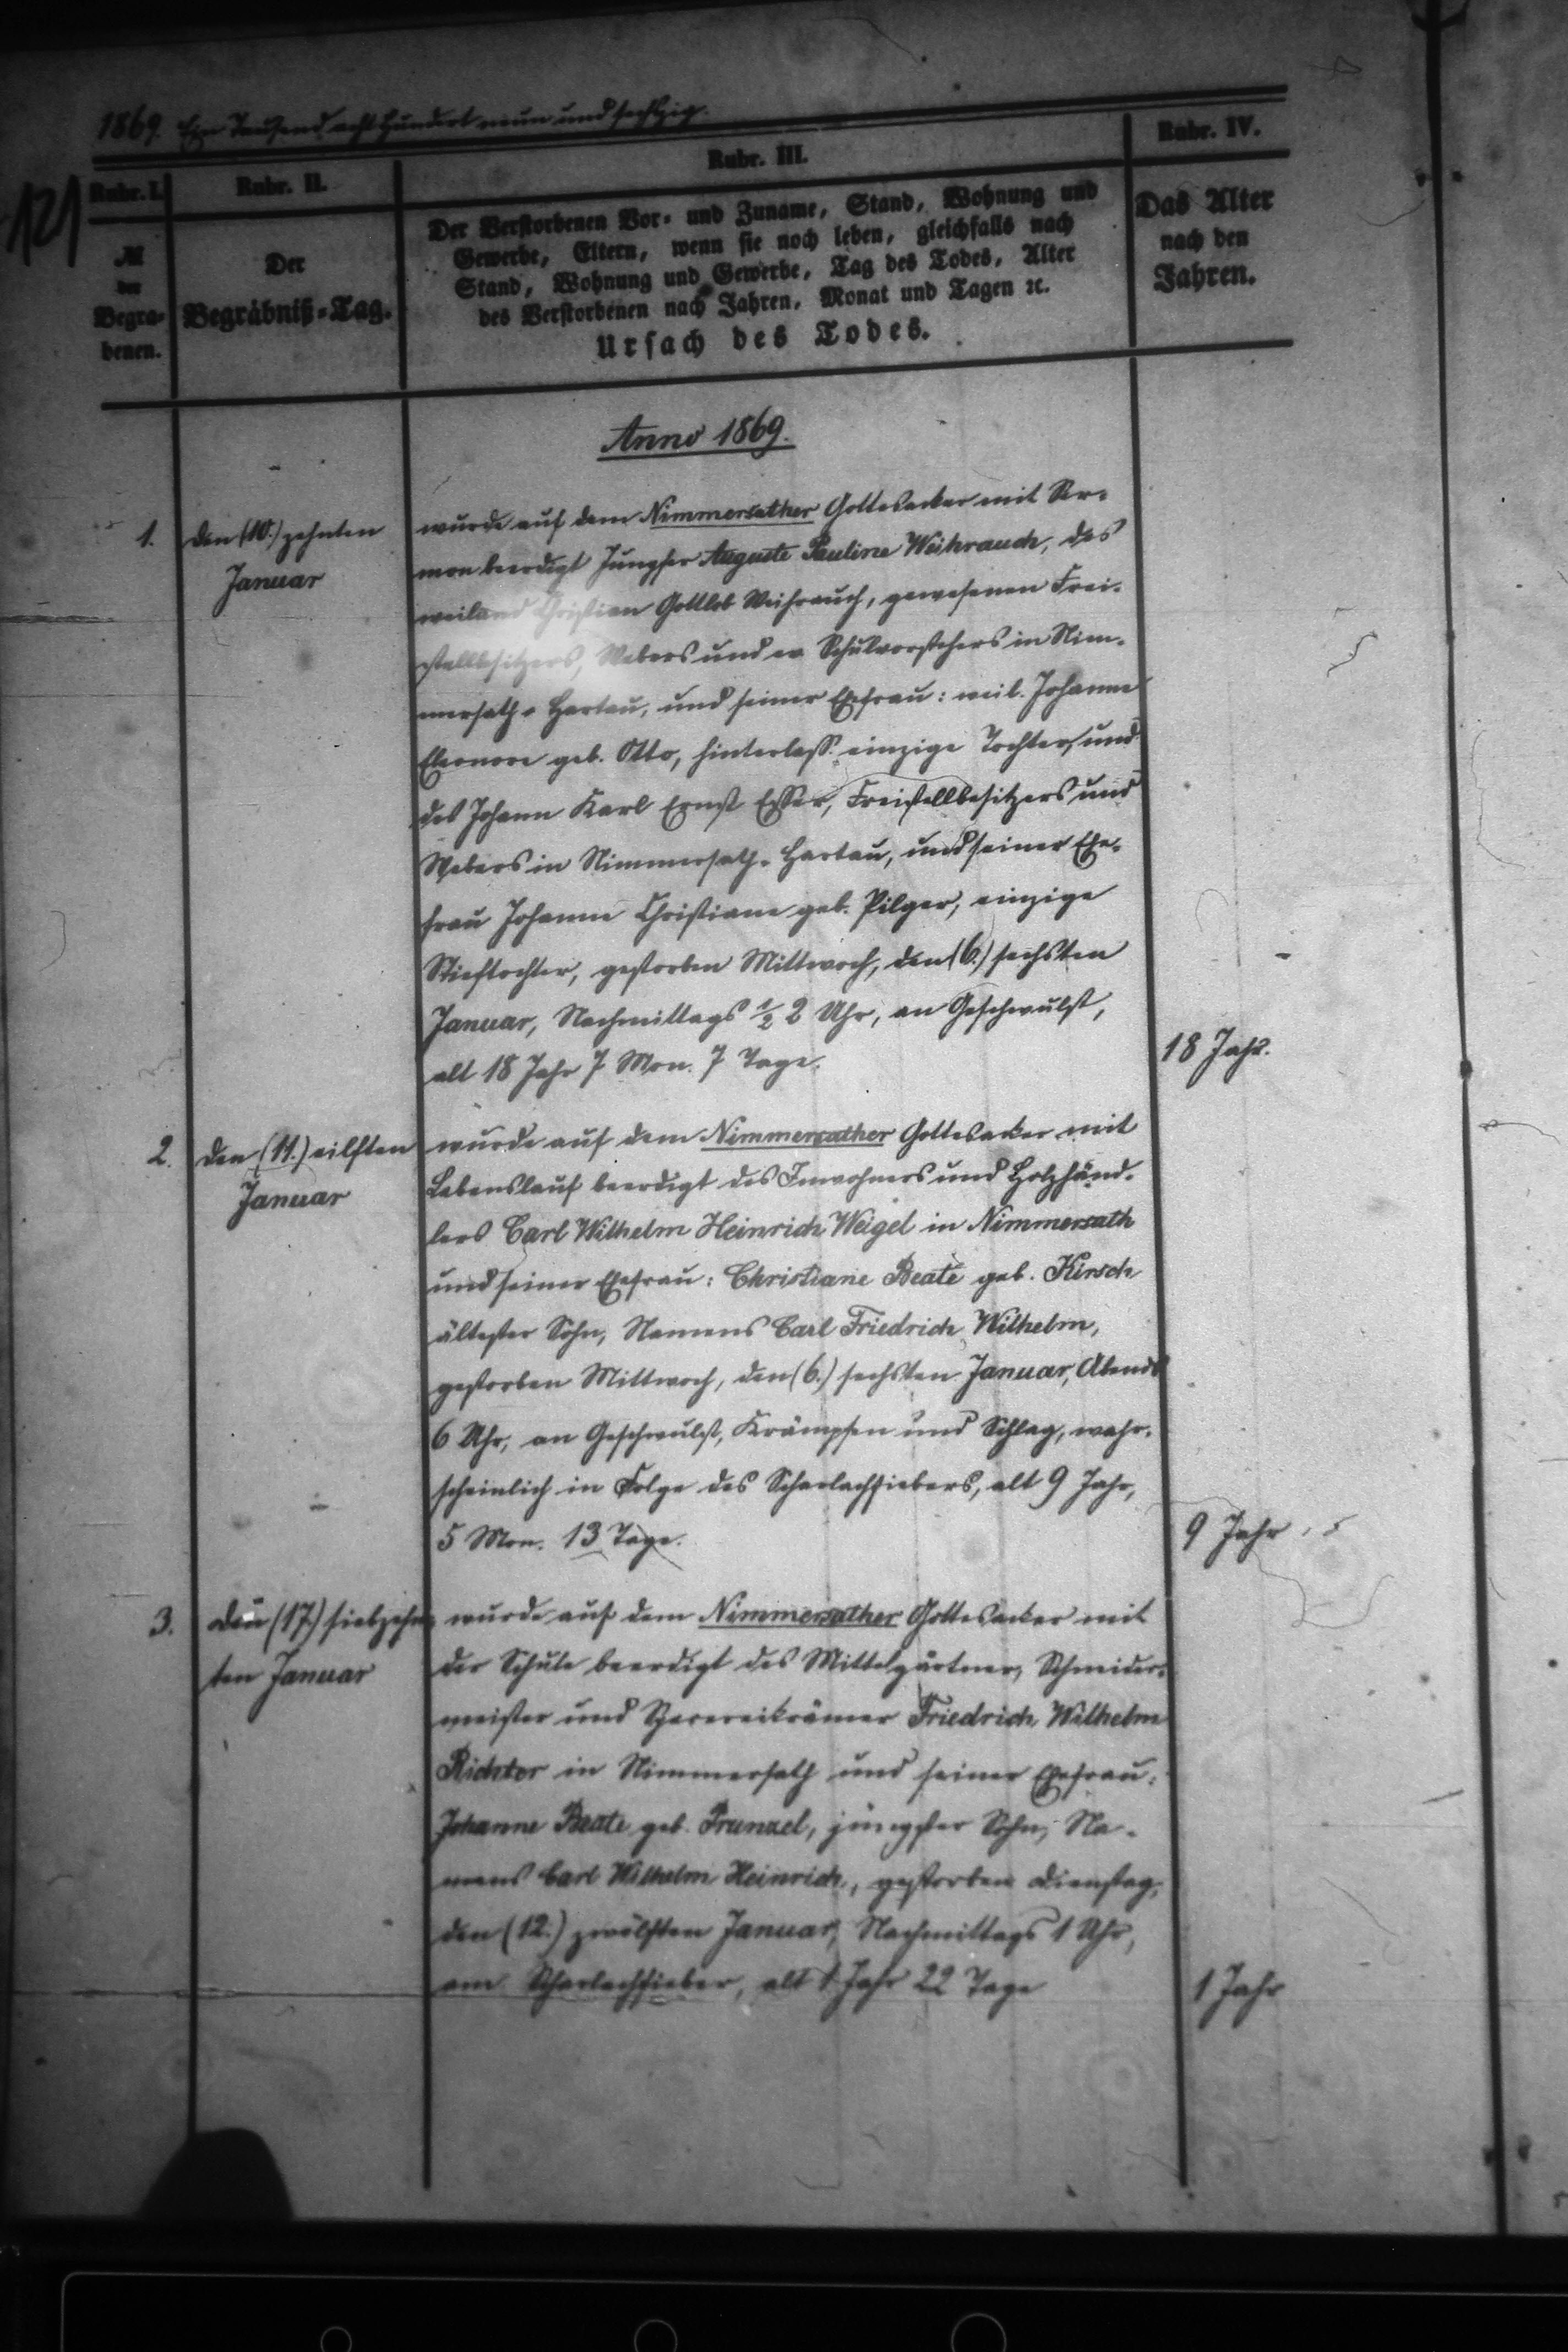 1869. Ein Tausend acht Hundert neun und sechszig.
121
Rubr. I.
Rubr. II.
Rubr. III.
Rubr. IV.
№ der Begra-
benen.
Der
Begräbniß-Tag.
Der Verstorbenen Vor- und Zuname, Stand, Wohnung und
Gewerbe, Eltern, wenn sie noch leben, gleichfalls nach
Stand, Wohnung und Gewerbe, Tag des Todes, Alter
des Verstorbenen nach Jahren, Monat und Tagen ꝛc.
Ursach des Todes.
Das Alter
nach den
Jahren.
Anno 1869.
1.
den (10.) zehnten
Januar
wurde auf dem Nimmersather Gottesacker mit Ser-
mon beerdigt Jungfer Auguste Pauline Weihrauch, des
weiland Christian Gottlob Weihrauch, gewesenen Frei-
stellbesitzers, Webers und Schulvorstehers in Nim-
mersath-Hartau, und seiner Ehefrau: weil. Johanne
Eleonore geb. Otto, hinterlass. einzige Tochter, und
des Johann Karl Ernst Esser, Freistellbesitzers und
Webers in Nimmersath-Hartau, und seiner Ehe-
frau Johanne Christiane geb. Pilger, einzige
Stieftochter, gestorben Mittwoch, den (6.) sechsten
Januar, Nachmittags ½ 2 Uhr, an Geschwulst,
alt 18 Jahr 7 Mon. 7 Tage.
18 Jahr.
2.
den (11.) eilften
Januar
wurde auf dem Nimmersather Gottesacker mit
Lebenslauf beerdigt des Inwohners und Holzhänd-
lers Carl Wilhelm Heinrich Weigel in Nimmersath
und seiner Ehefrau: Christiane Beate geb. Kirsch
ältester Sohn, Namens Carl Friedrich Wilhelm,
gestorben Mittwoch, den (6.) sechsten Januar, Abends
6 Uhr, an Geschwulst, Krämpfen und Schlag, wahr-
scheinlich in Folge des Scharlachfiebers, alt 9 Jahr,
5 Mon. 13 Tage.
9 Jahr
3.
den (17.) siebzehn-
ten Januar
wurde auf dem Nimmersather Gottesacker mit
der Schule beerdigt des Mittelgärtner, Schneider-
meister und Spezereikrämer Friedrich Wilhelm
Richter in Nimmersath und seiner Ehefrau:
Johanne Beate geb. Prenzel, jüngster Sohn, Na-
mens Carl Wilhelm Heinrich, gestorben Dienstag,
den (12.) zwölften Januar, Nachmittags 1 Uhr,
am Scharlachfieber, alt 1 Jahr 22 Tage
1 Jahr